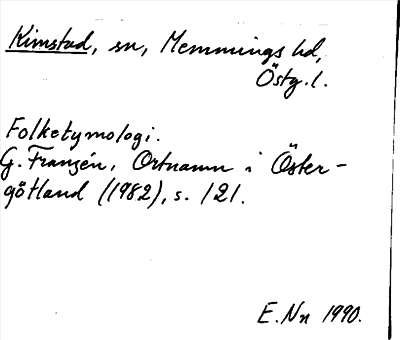 Kimstad, sn, Memmings hd,
Östg. l.
Folketymologi.
G. Franzén, Ortnamn i Öster-
götland (1982), s. 121.
E. Nn 1990.